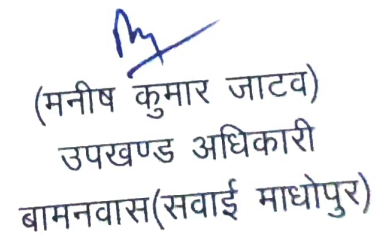 (मनीष कुमार जाटव)
उपखण्ड अधिकारी
बामनवास(सवाई माधोपुर)